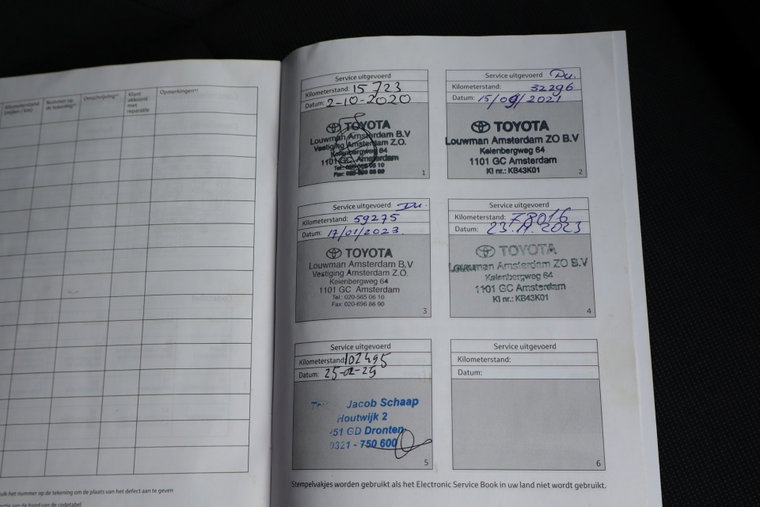 Kilometerstand
(mijlen / km)
Nummer op
de tekening*¹
Omschrijving*²
Klant
akkoord
met
reparatie
Opmerkingen*³
uik het nummer op de tekening om de plaats van het defect aan te geven
Service uitgevoerd
Kilometerstand: 15723
Datum: 2-10-2020
TOYOTA
Louwman Amsterdam B.V
Vestiging Amsterdam Z.O.
Keienbergweg 64
1101 GC Amsterdam
Tel: 020-565 06 10
Fax: 020-696 86 90
1
Service uitgevoerd Du.
Kilometerstand: 32296
Datum: 15/09/2021
TOYOTA
Louwman Amsterdam ZO B.V
Keienbergweg 64
1101 GC Amsterdam
KI nr.: KB43K01
2
Service uitgevoerd Du.
Kilometerstand: 59275
Datum: 17/01/2023
TOYOTA
Louwman Amsterdam B.V
Vestiging Amsterdam Z.O.
Keienbergweg 64
1101 GC Amsterdam
Tel: 020-565 06 10
Fax: 020-696 86 90
3
Service uitgevoerd
Kilometerstand: 78016
Datum: 23.11.2023
TOYOTA
Louwman Amsterdam ZO B.V
Keienbergweg 64
1101 GC Amsterdam
KI nr.: KB43K01
4
Service uitgevoerd
Kilometerstand: 102495
Datum: 25-02-25
Jacob Schaap
Houtwijk 2
251 GD Dronten
0321 - 750 600
5
Service uitgevoerd
Kilometerstand:
Datum:
6
Stempelvakjes worden gebruikt als het Electronic Service Book in uw land niet wordt gebruikt.